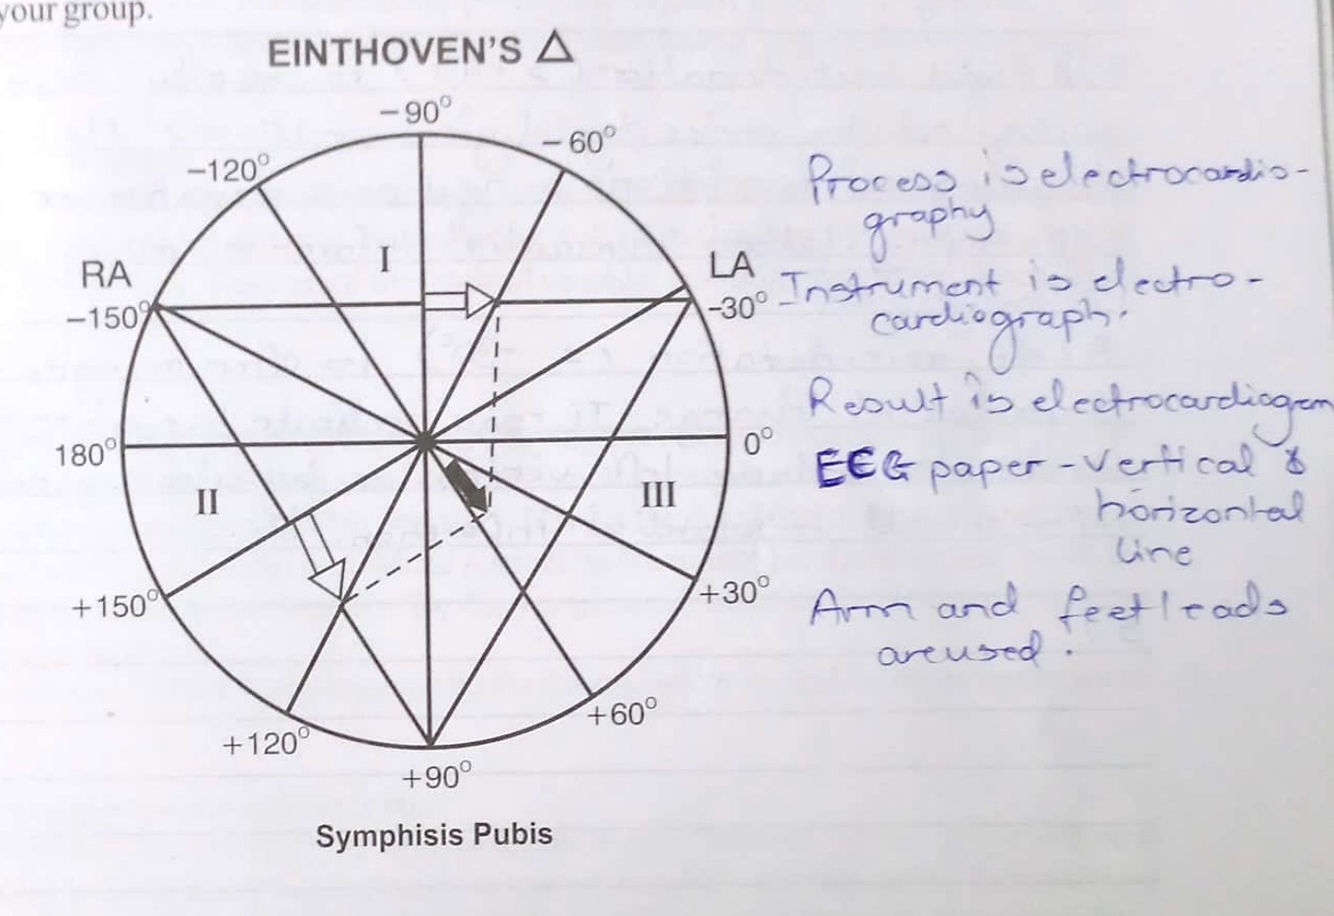 your group.
EINTHOVEN'S △
−90°
−60°
−120°
I
RA
LA
−150°
-30°
180°
0°
II
III
+150°
+30°
+120°
+60°
+90°
Symphisis Pubis
Process is electrocardio-
graphy
Instrument is electro-
cardiograph.
Result is electrocardiogram
EEG paper - vertical &
horizontal
line
Arm and feet leads
are used.